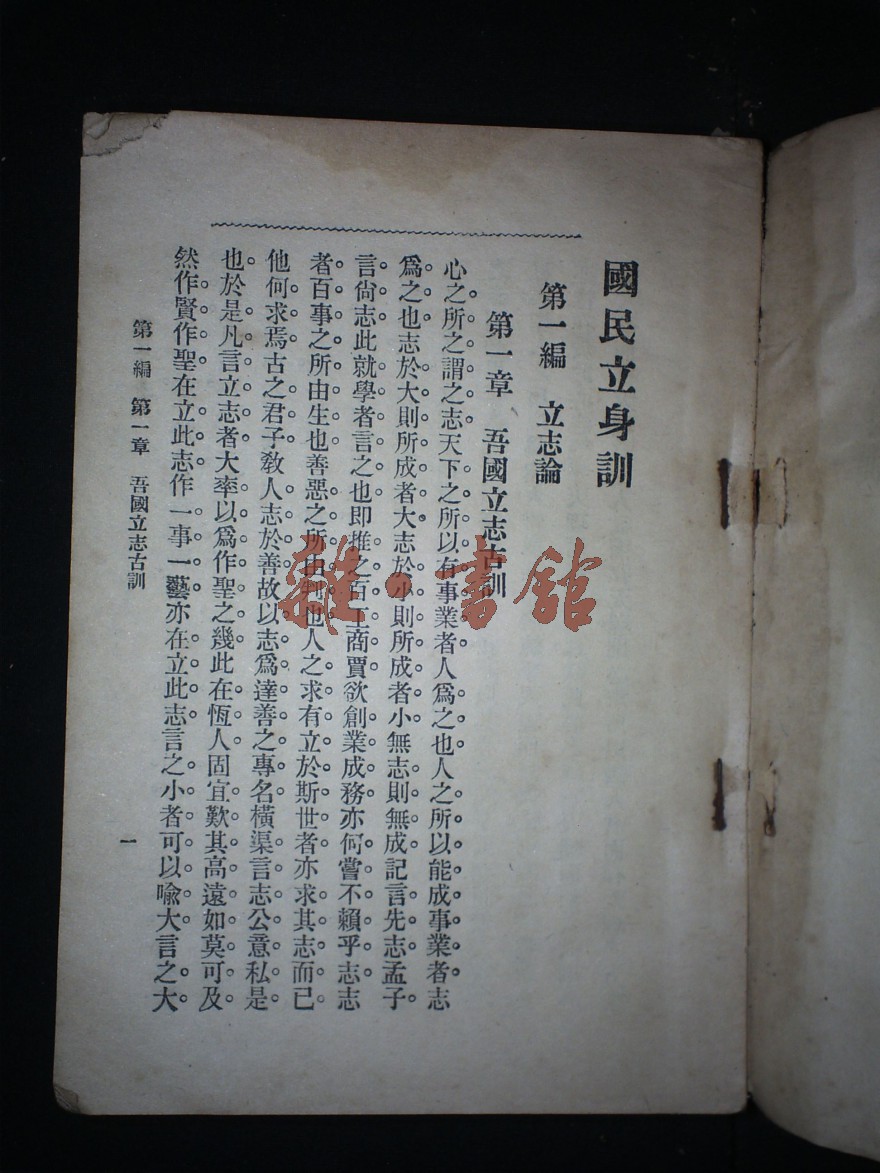 國民立身訓
第一編　立志論
第一章　吾國立志古訓
心之所之謂之志天下之所以有事業者人爲之也人之所以能成事業者志
爲之也志於大則所成者大志於小則所成者小無志則無成記言先志孟子
言尙志此就學者言之也即推之百工商賈欲創業成務亦何嘗不賴乎志志
者百事之所由生也善惡之所由判也人之求有立於斯世者亦求其志而已
他何求焉古之君子敎人志於善故以志爲達善之專名橫渠言志公意私是
也於是凡言立志者大率以爲作聖之幾此在恆人固宜歎其高遠如莫可及
然作賢作聖在立此志作一事一藝亦在立此志言之小者可以喩大言之大
第一編　第一章　吾國立志古訓
一
雜·書館